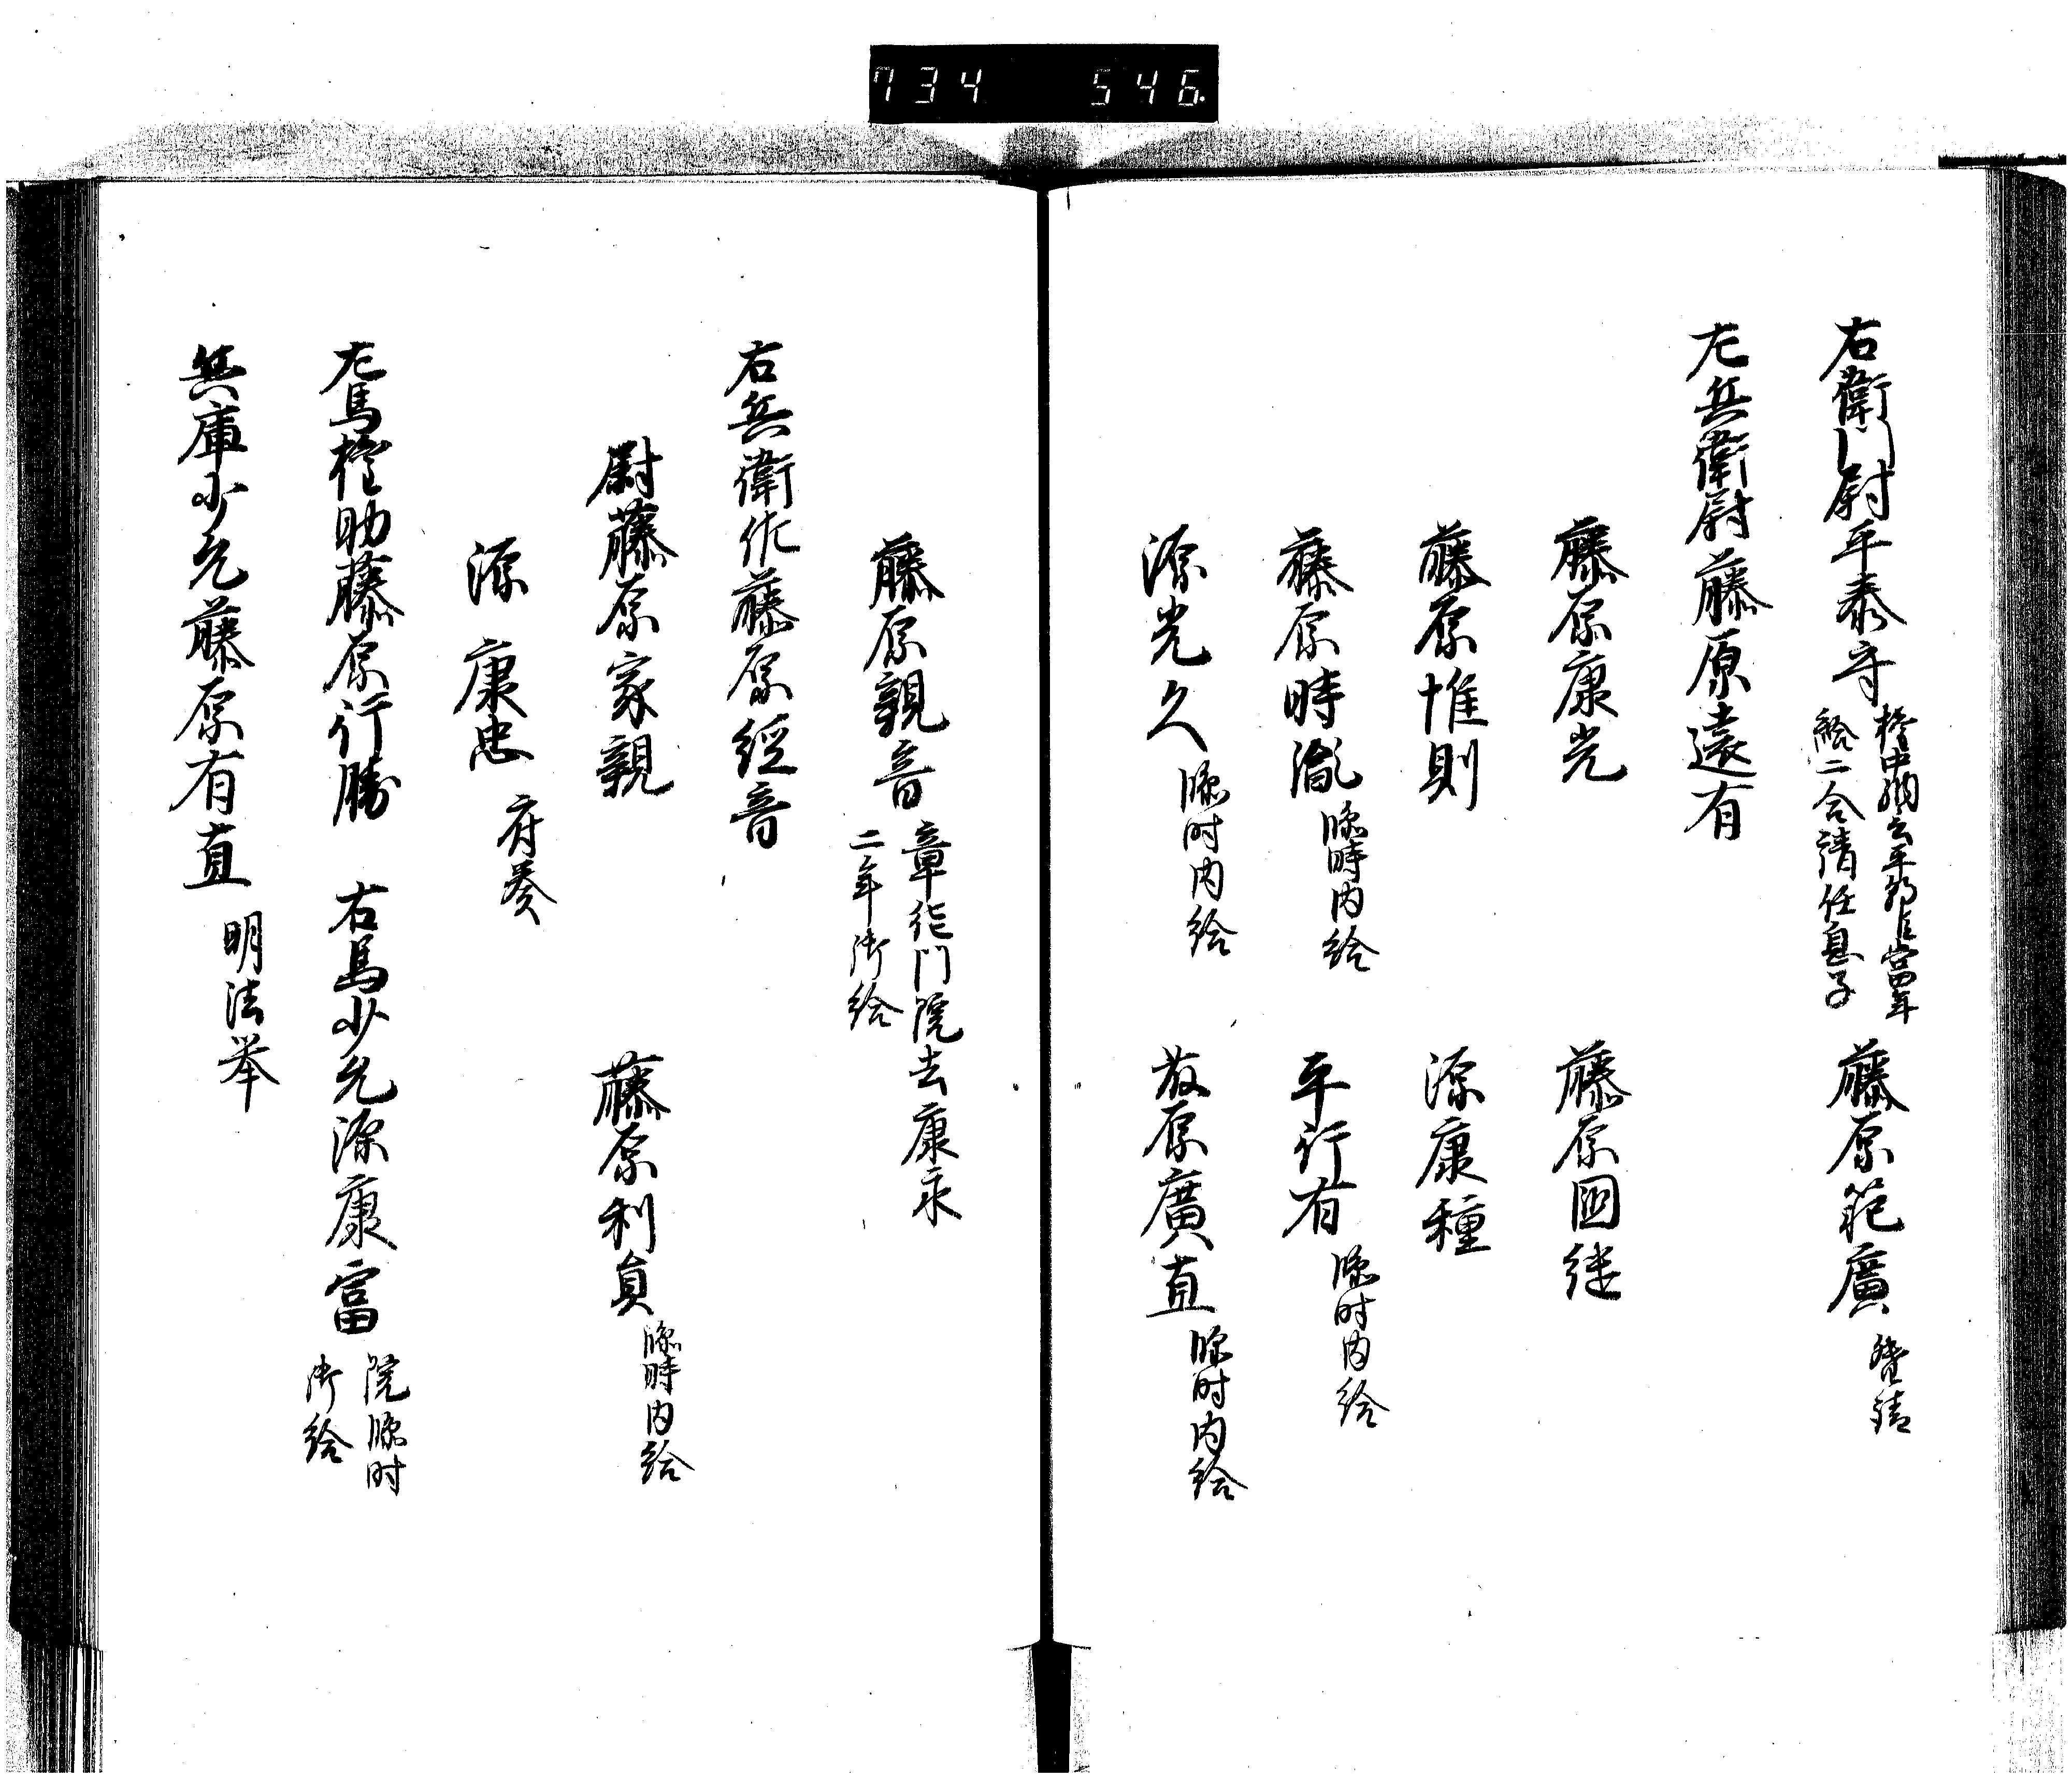 734 546
右衛門尉平泰守 権中納言平朝臣當年
給二合請任息子 藤原範廣
左兵衛尉藤原遠有
藤原康光 藤原国継
藤原惟則 源康種
藤原時胤 臨時内給 平行有 臨時内給
源光久 臨時内給 藤原廣直 臨時内給
藤原親音 章徳門院去康永
二年御給
右兵衛佐藤原経音
尉藤原家親 藤原利貞 臨時内給
源康忠 府奏
左馬権助藤原行勝 右馬少允源康富 院臨時
御給
兵庫少允藤原有直 明法挙